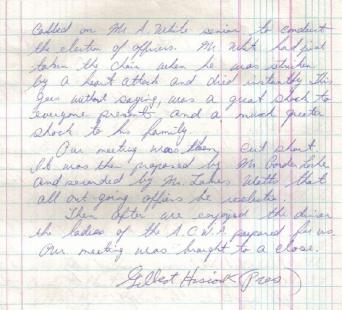 Called on Mr. A. White senior, to conduct
the election of officers. Mr. White had just
taken the chair when he was stricken
by a heart attack and died instantly this
goes without saying, was a great shock to
everyone present, and a much greater
shock to his family.
Our meeting was then, cut short.
It was then proposed by Mr. Gordon
and seconded by Mr. that
all out going officers be reelected.
Then after we enjoyed the dinner
the ladies of the A.C.W. prepared for us.
Our meeting was brought to a close.
Gilbert (Pres)